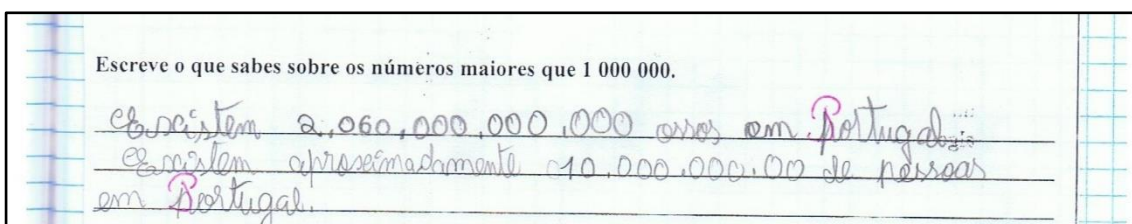 Escreve o que sabes sobre os números maiores que 1 000 000.
Existem 2.060.000.000.000 ossos em Portugal.
Existem aproximadamente 10.000.000.00 de pessoas
em Portugal.